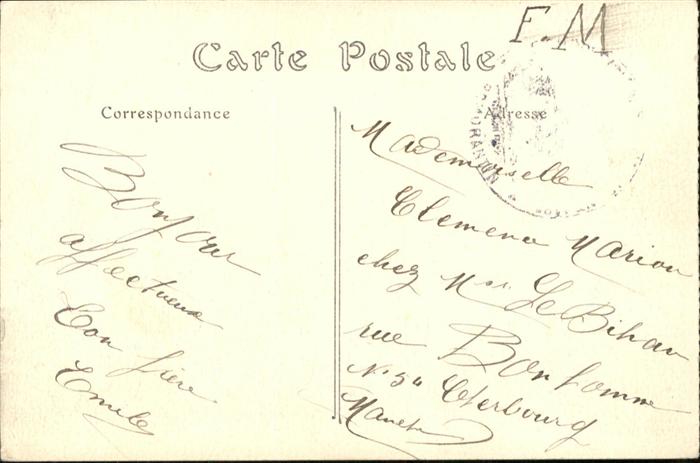 F.M
Carte Postale
Correspondance
Adresse
Bonjour
affectueux
Ton frère
Emile
Mademoiselle
Clemence Marion
chez Mr Le Bihan
rue Bonhomme
N° 54 Cherbourg
Manche